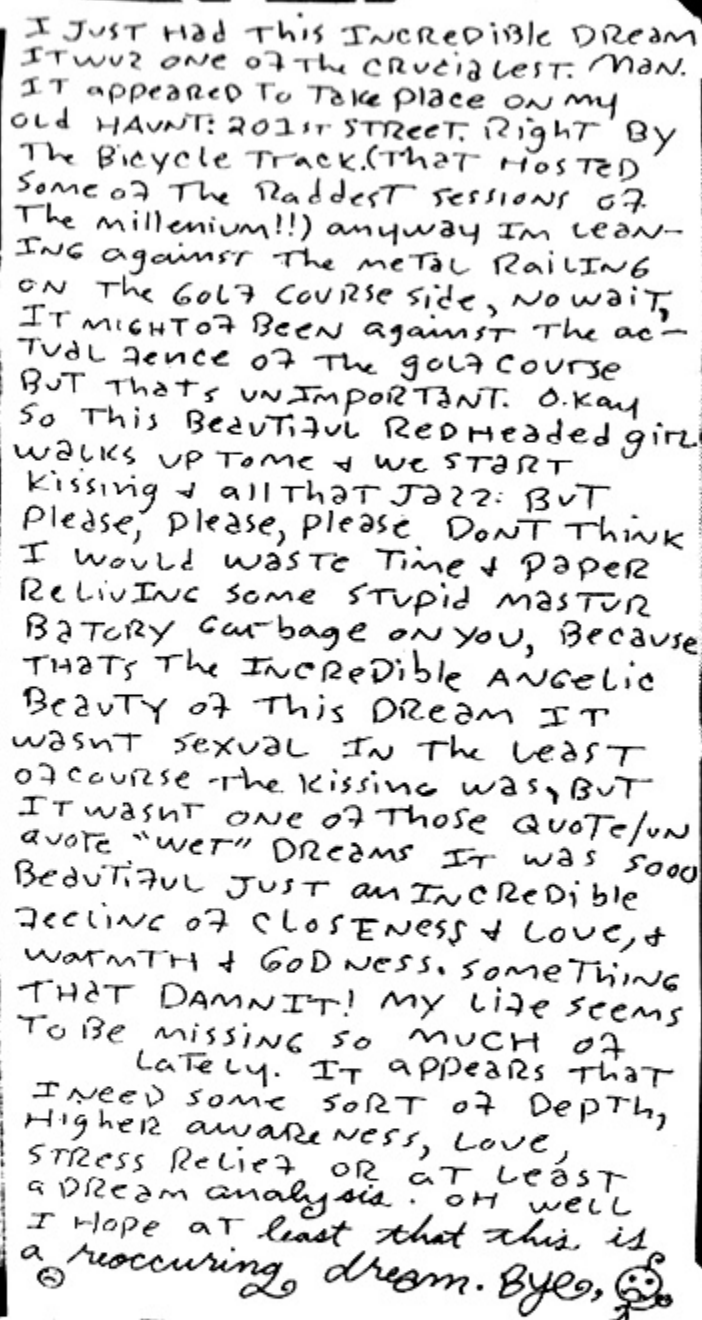 I JUST Had THis INCReDiBle DReam
IT wuz one of The CRUcialest. Man.
IT appeaReD To Take place on my
old HAVNT: 201st STReeT. Right By
The Bicycle Track.(THaT HosTeD
Some of The Raddest sessions of
The millenium!!) anyway Im lean-
ING against The meTal RaiLING
on The Golf Course side, No waiT,
IT MigHT of Been against The ac-
Tual fence of The golf course
BuT ThaTs unImpoRTanT. O.Kay
So This BeauTiful RedHeaded girl
walks up To me & we STaRT
Kissing & all THaT Jazz: BuT
please, please, please DonT Think
I would wasTe Time & papeR
ReLivINg some STupid masTuR
BaToRy Garbage on you, Because
THaTs The INCReDible ANGelic
BeauTy of This DReam IT
wasnT sexual IN The leasT
of couRse The Kissing was, BuT
IT wasnT one of THose QuoTe/un
quoTe "weT" DReams IT was sooo
BeauTiful JusT an INCReDible
feeling of CLosENess & Love, &
WarmTH & GoDNess. someTHING
THaT DAMNIT! My life seems
To Be missiNG so MucH of
LaTely. IT appeaRs THaT
I NeeD some soRT of DepTh,
HigHeR awaReness, Love,
STRess Relief oR aT LeasT
a DReam analysis. OH well
I Hope aT least that this is
a reoccuring dream. Bye,